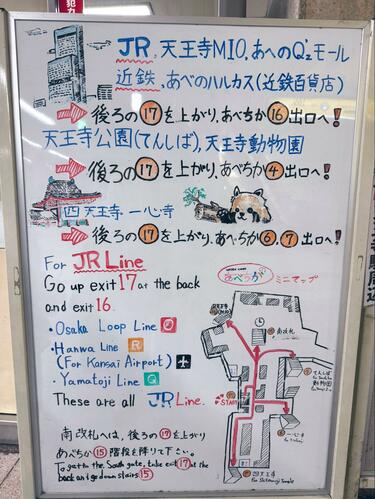 JR, 天王寺MIO, あべのQ'zモール
近鉄, あべのハルカス(近鉄百貨店)
→後ろの⑰を上がり, あべちか⑯出口へ!
天王寺公園(てんしば), 天王寺動物園
→後ろの⑰を上がり, あべちか④出口へ!
四天王寺・一心寺
→後ろの⑰を上がり, あべちか⑥,⑦出口へ!
For JR Line
Go up exit 17 at the back
and exit 16.
・Osaka Loop Line O
・Hanwa Line R
(For Kansai Airport)
・Yamatoji Line Q
These are all JR Line.
南改札へは, 後ろの⑰を上がり
あべちか⑮階段を降りて下さい。
To get to the South gate, take exit ⑰ at the
back and go down stairs ⑮
あべちか ミニマップ
南改札
START
てんしば
動物園
一心寺
四天王寺
For Shitennoji Temple